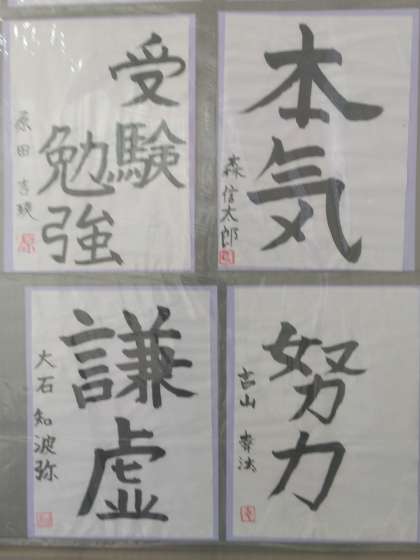 本気
森信太郎
受験
勉強
原田
努力
古山
謙虚
大石 知波弥